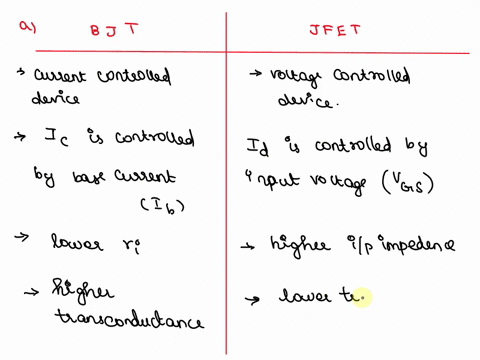 a) BJT JFET
→ current controlled
device
→ voltage controlled
device.
→ Ic is controlled
by base current
(Ib)
Id is controlled by
input voltage (VGS)
→ lower ri
→ higher i/p impedence
→ higher
transconductance
→ lower tr